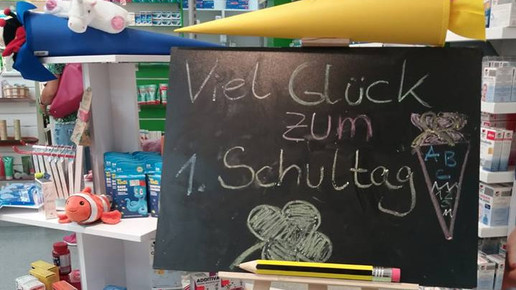 Viel Glück
zum
1. Schultag
A B
C